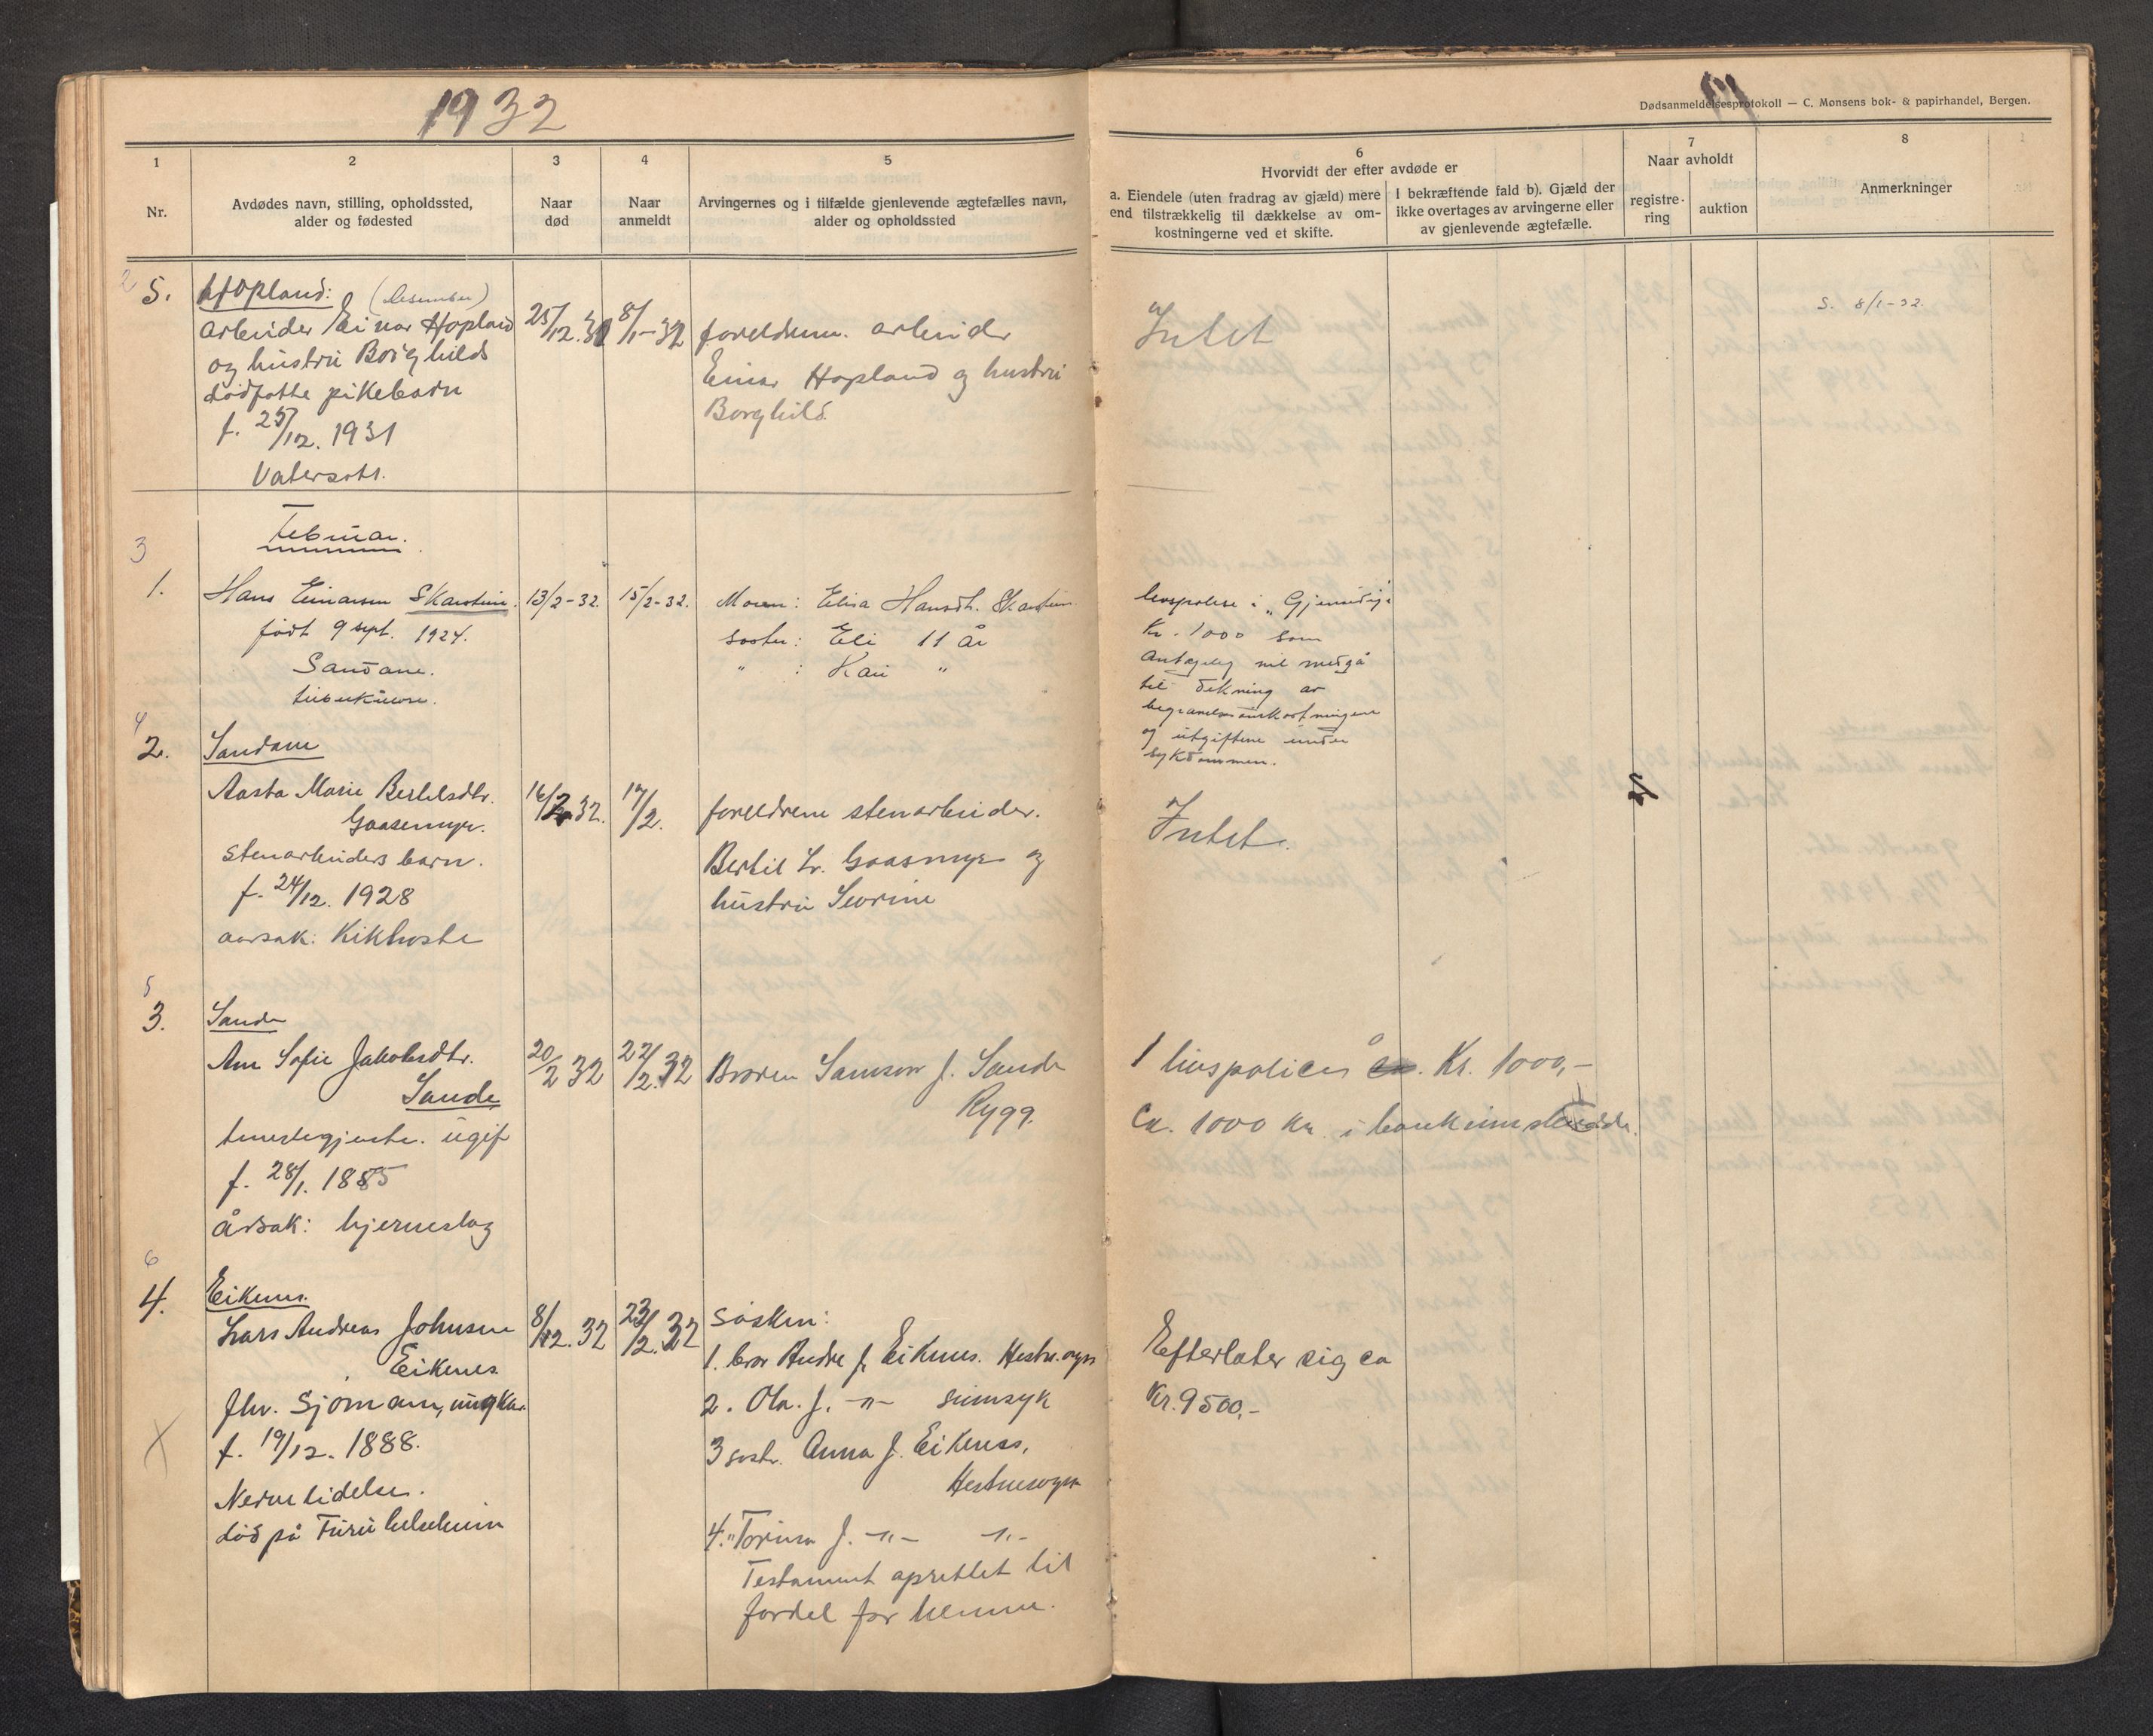 1932
Dødsanmeldelsesprotokoll — C. Monsens bok- & papirhandel, Bergen.
1
Nr.
2
Avdødes navn, stilling, opholdssted,
alder og fødested
3
Naar
død
4
Naar
anmeldt
5
Arvingernes og i tilfælde gjenlevende ægtefælles navn,
alder og opholdssted
6
Hvorvidt der efter avdøde er
a. Eiendele (uten fradrag av gjæld) mere
end tilstrækkelig til dækkelse av om-
kostningerne ved et skifte.
I bekræftende fald b). Gjæld der
ikke overtages av arvingerne eller
av gjenlevende ægtefælle.
7
Naar avholdt
registre-
ring
auktion
8
Anmerkninger
2
5.
Hopland:
(Desember)
Arbeider Einar Hopland
og hustru Borghilds
dødfødte pikebarn
f. 25/12. 1931
Vatersott.
25/12. 31
8/1-32
foreldrene. arbeider
Einar Hopland og hustru
Borghild.
Intet
S. 8/1-32.
Februar.
3
1.
Hans Einarsen Skarstein.
født 9 sept. 1924.
Sandane.
tuberkulose.
13/2-32.
15/2-32.
Moren: Elisa Hansdt. Skarstein
Søster: Eli 11 År
" : Kari "
livspolise i „Gjensidige
Kr. 1000 som
antagelig vil medgå
til dekning av
begravelsesomkostningene
og utgiftene under
sykdommen.
4
2.
Sandane
Aasta Marie Bertelsdtr.
Gaasemyr.
stenarbeiders barn.
f. 24/12. 1928
aarsak: Kikhoste
16/2 32.
17/2.
foreldrene stenarbeider.
Bertil Gaasmyr og
hustru Severine
Intet.
5
3.
Sande
Ane Sofie Jakobsdtr.
Sande
tenestegjente. ugift
f. 28/1. 1885
årsak: hjerneslag
20/2 32
22/2. 32
Broren Samson J. Sande
Rygg.
1 livspolices å Kr. 1000,-
Ca. 1000 Kr. i bankinnskudd.
6
4.
Eikenes.
Lars Andreas Johnsen
Eikenes
fhv. Sjømann, ungkar.
f. 19/12. 1888.
Nervelidelse.
død på Furu helseheim
X
8/2. 32
23/2. 32
Søsken:
1. bror Andre J. Eikenes.
2. Ola. J. -"- sinnsyk
3 søstr. Anna J. Eikenes,
4. " Torina J. -"- -"-
Testament oprettet til
fordel for henne.
Efterlater sig ca
Kr. 9500,-